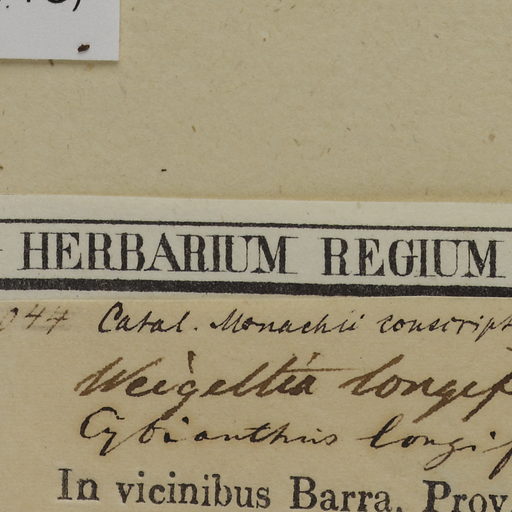 HERBARIUM REGIUM
044 Catal. Monachii conscript
Weigeltia longif
Cybianthus longif
In vicinibus Barra, Prov.